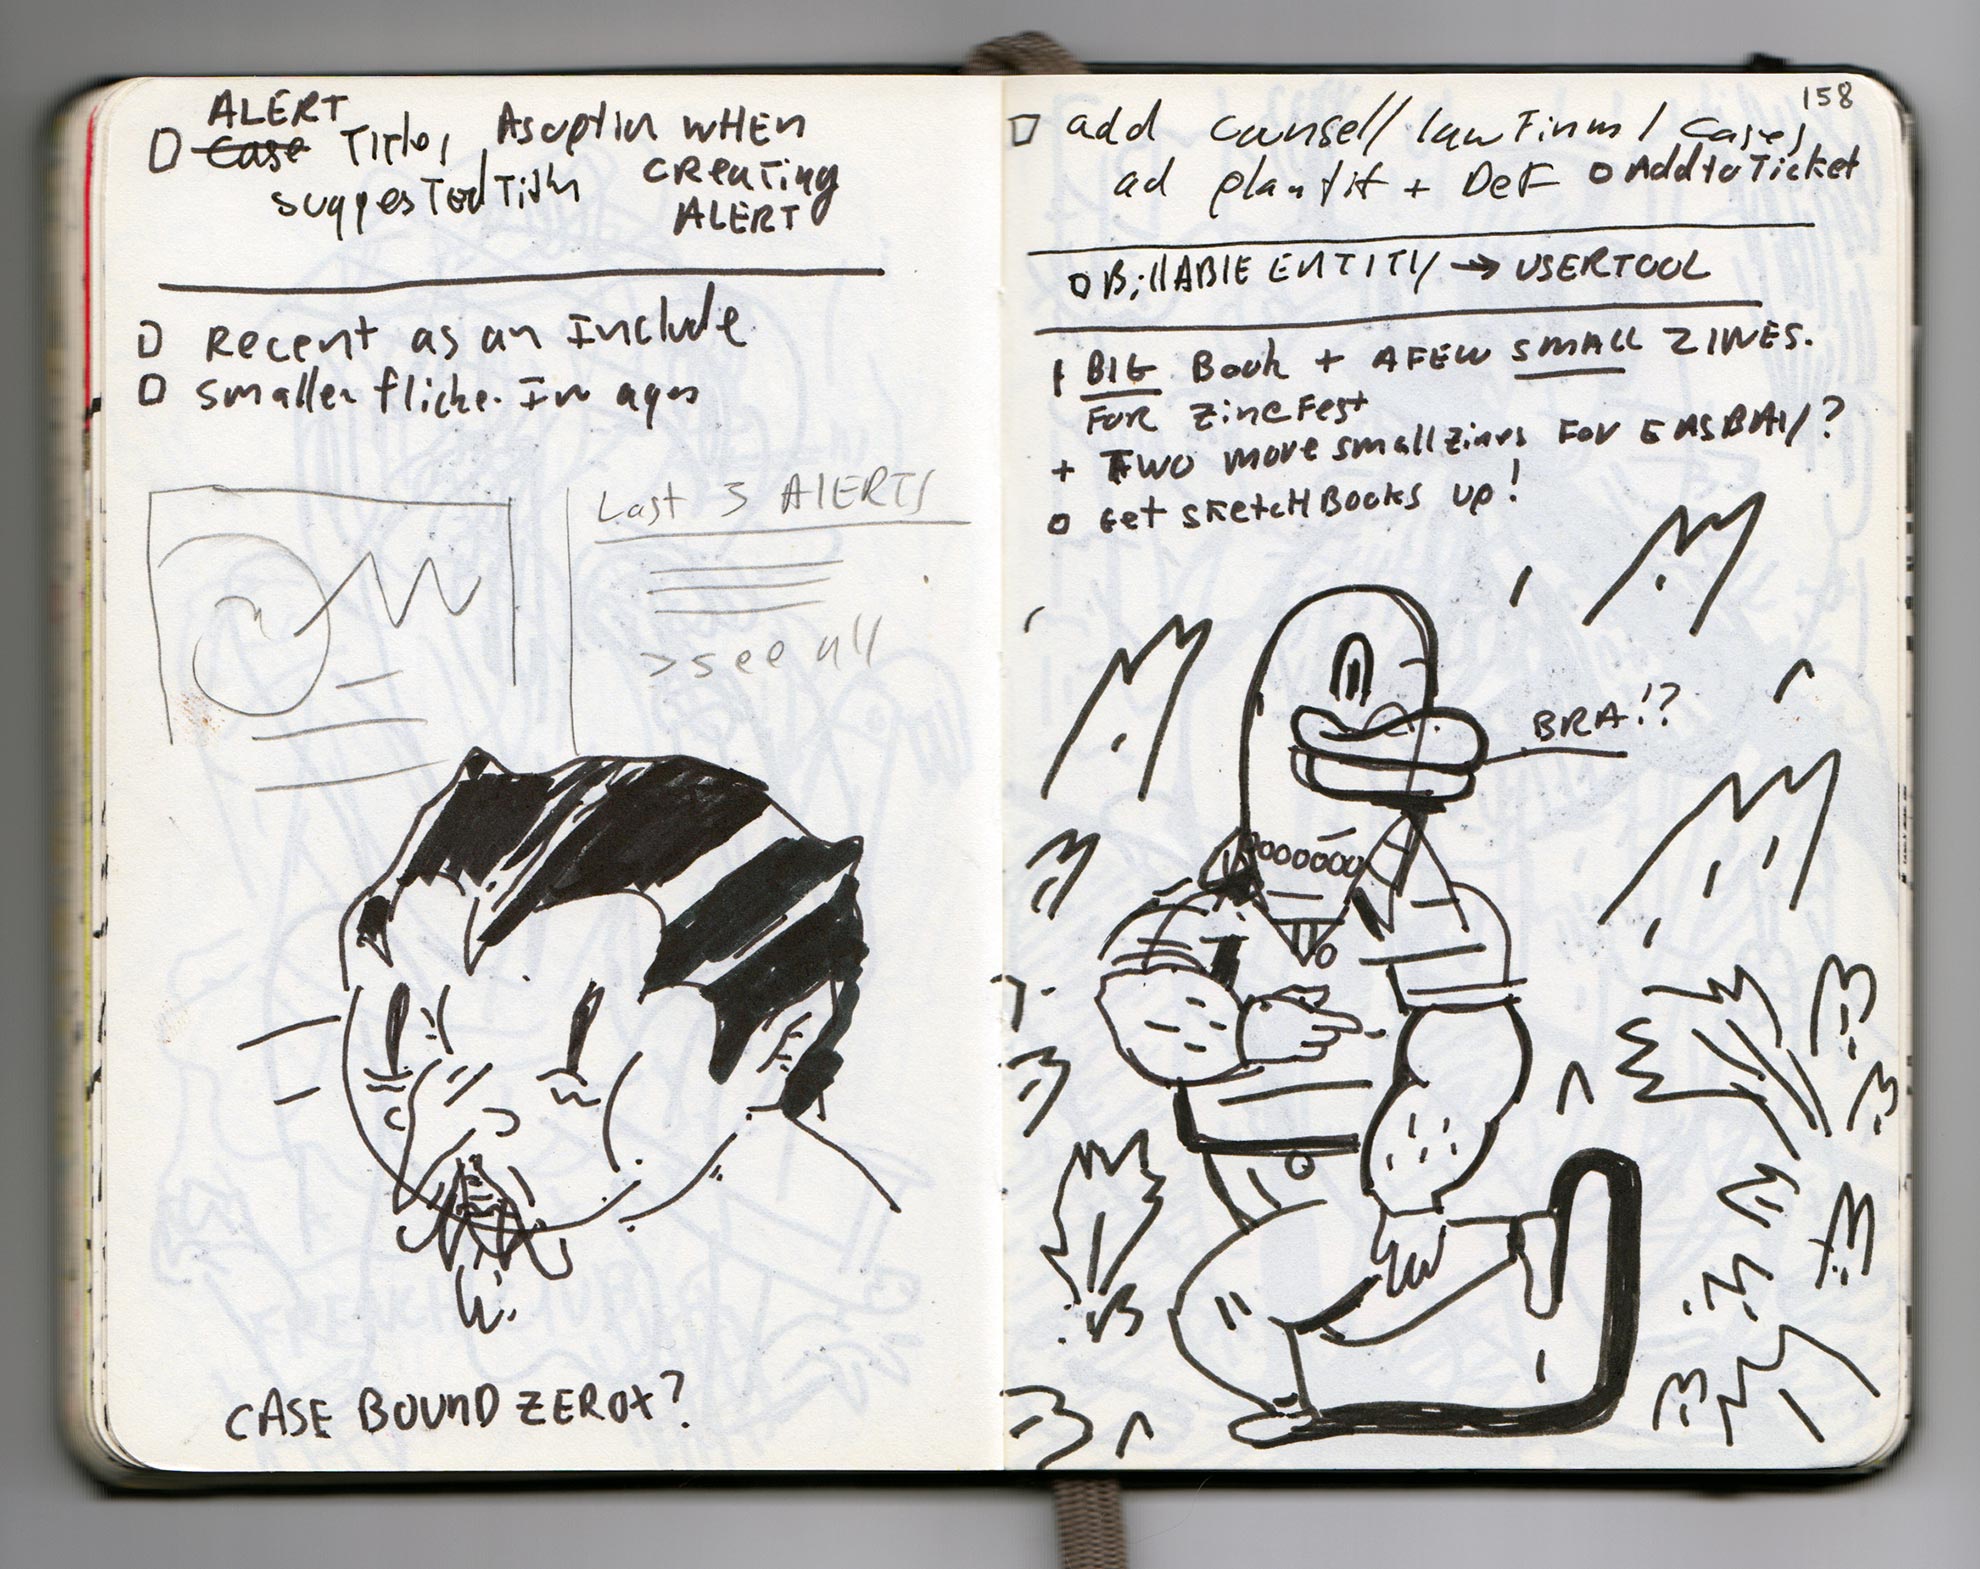 ALERT
Case Titles As option WHEN
suggested Titles CReaTing
ALERT
Recent as an Include
smaller flickr Images
Last 3 AlERTS
>see all
CASE BOUND ZEROX?
158
add counsel/lawFirms/Cases
ad plantif + DeF Add to Ticket
B;llABlE ENTITY → USERTOOL
1 BIG Book + A FEW SMALL ZINES.
FOR ZineFest
+ TWO more small zines FOR EASBAY?
Get SketcHBooks up!
BRA!?